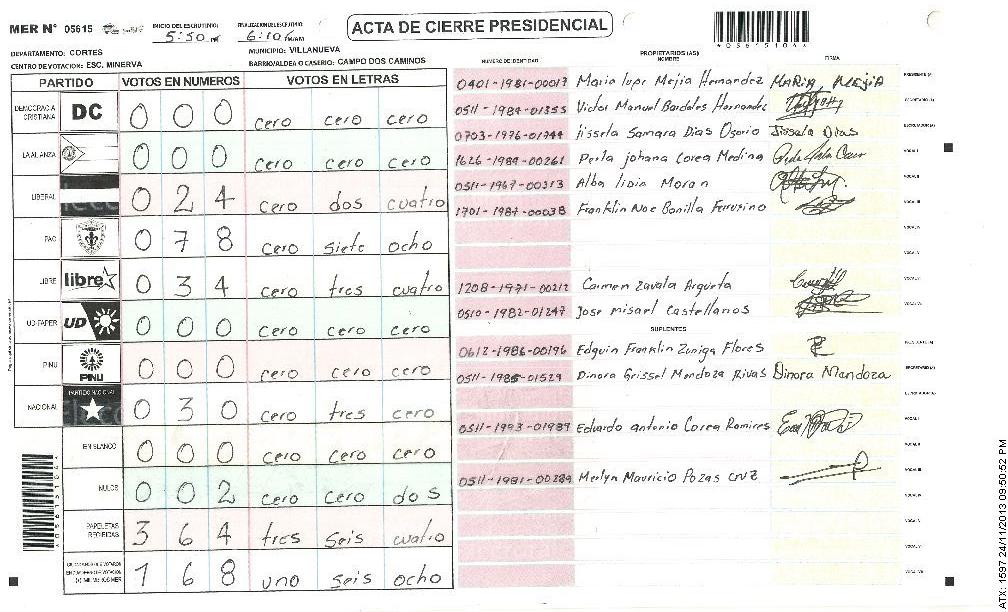 MER Nº 05615
INICIO DEL ESCRUTINIO: 5:50 PM
FINALIZACION DEL ESCRUTINIO: 6:10 PM/AM
ACTA DE CIERRE PRESIDENCIAL
*05615104*
DEPARTAMENTO: CORTES
MUNICIPIO: VILLANUEVA
CENTRO DE VOTACION: ESC. MINERVA
BARRIO/ALDEA O CASERIO: CAMPO DOS CAMINOS
PARTIDO VOTOS EN NUMEROS VOTOS EN LETRAS
DEMOCRACIA CRISTIANA DC 0 0 0 cero cero cero
LA ALIANZA 0 0 0 cero cero cero
LIBERAL 0 2 4 cero dos cuatro
PAC 0 7 8 cero siete ocho
LIBRE libre 0 3 4 cero tres cuatro
UD-FAPER UD 0 0 0 cero cero cero
PINU PINU 0 0 0 cero cero cero
NACIONAL PARTIDO NACIONAL 0 3 0 cero tres cero
EN BLANCO 0 0 0 cero cero cero
NULOS 0 0 2 cero cero dos
PAPELETAS RECIBIDAS 3 6 4 tres seis cuatro
1 6 8 uno seis ocho
NUMERO DE IDENTIDAD PROPIETARIOS (AS) NOMBRE FIRMA
0401-1981-00017 Maria lupe Mejia Hernandez MARIA MEJIA PRESIDENTE (A)
0511-1984-01355 Victor Manuel Bardales Hernandes SECRETARIO (A)
0703-1976-01944 Jissela Samara Dias Osorio Jissela Dias ESCRUTADOR (A)
1626-1989-00261 Perla johana Corea Medina VOCAL I
0511-1967-00313 Alba lidia Moran VOCAL II
1701-1984-00038 Franklin Noe Bonilla Ferrusino VOCAL III
VOCAL IV
VOCAL V
1208-1971-00212 Carmen Zavala Argueta VOCAL VI
0510-1982-01247 Jose misael Castellanos VOCAL VII
SUPLENTES
0612-1986-00196 Edguin Franklin Zuniga Flores PRESIDENTE (A)
0511-1985-01529 Dinora Grissel Mendoza Rivas Dinora Mandoza SECRETARIO (A)
ESCRUTADOR (A)
0511-1993-01989 Eduardo antonio Corea Ramires VOCAL I
VOCAL II
0511-1981-00289 Merlyn Mauricio Pozas cruz VOCAL III
VOCAL IV
VOCAL V
VOCAL VI
VOCAL VII
ATX: 1597 24/11/2013 09:50:52 PM